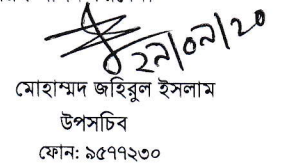 ২৯/০৯/২০
মোহাম্মদ জহিরুল ইসলাম
উপসচিব
ফোন: ৯৫৭৭২৩০